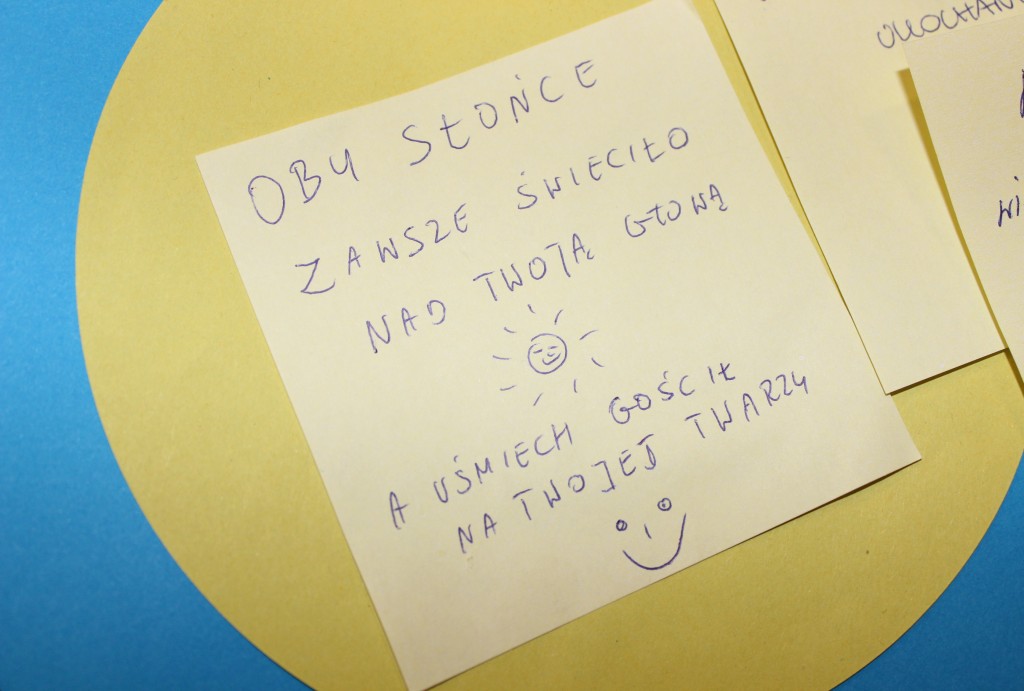 OBY SŁOŃCE
ZAWSZE ŚWIECIŁO
NAD TWOJĄ GŁOWĄ
A UŚMIECH GOŚCIŁ
NA TWOJEJ TWARZY